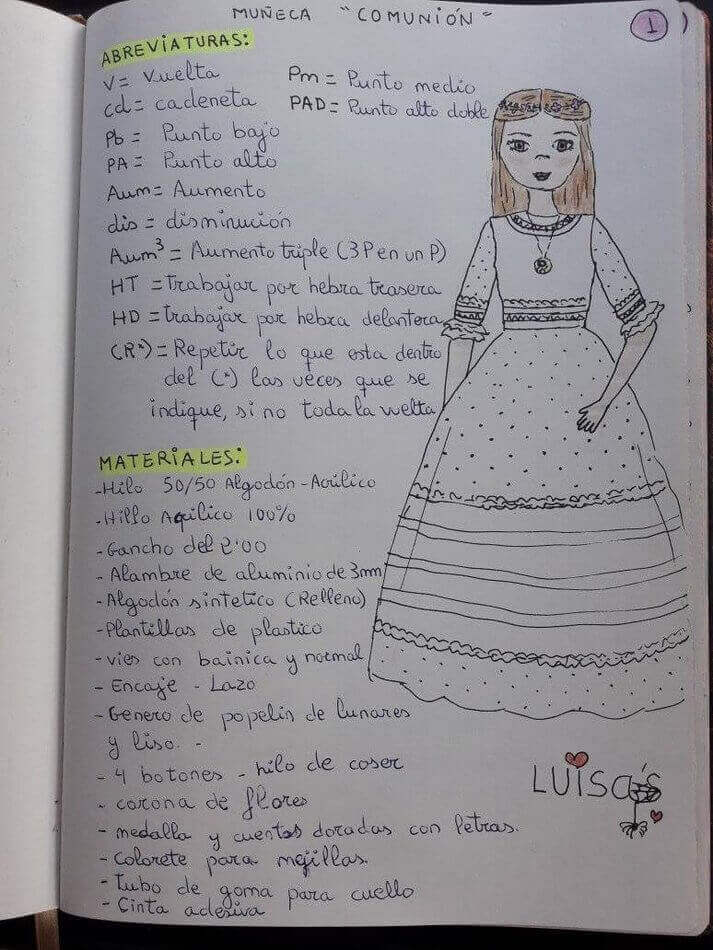 MUÑECA "COMUNIÓN"
1
ABREVIATURAS:
V= Vuelta
Pm = Punto medio
cd= cadeneta
PAD= Punto alto doble
Pb = Punto bajo
PA = Punto alto
Aum= Aumento
dis = disminución
Aum³ = Aumento triple (3 P en un P)
HT = trabajar por hebra trasera
HD = trabajar por hebra delantera
(R*) = Repetir lo que esta dentro
del (*) las veces que se
indique, si no toda la vuelta
MATERIALES:
- Hilo 50/50 Algodón - Acrilico
- Hillo Aqilico 100%
- Gancho del 2'00
- Alambre de aluminio de 3mm
- Algodón sintetico (Relleno)
- Plantillas de plastico
- vies con bainica y normal
- Encaje - Lazo
- Genero de popelin de lunares
y liso. -
- 4 botones - hilo de coser
- corona de flores
- medalla y cuentas doradas con letras.
- Colorete para mejillas.
- Tubo de goma para cuello
- Cinta adesiva
LUISa's